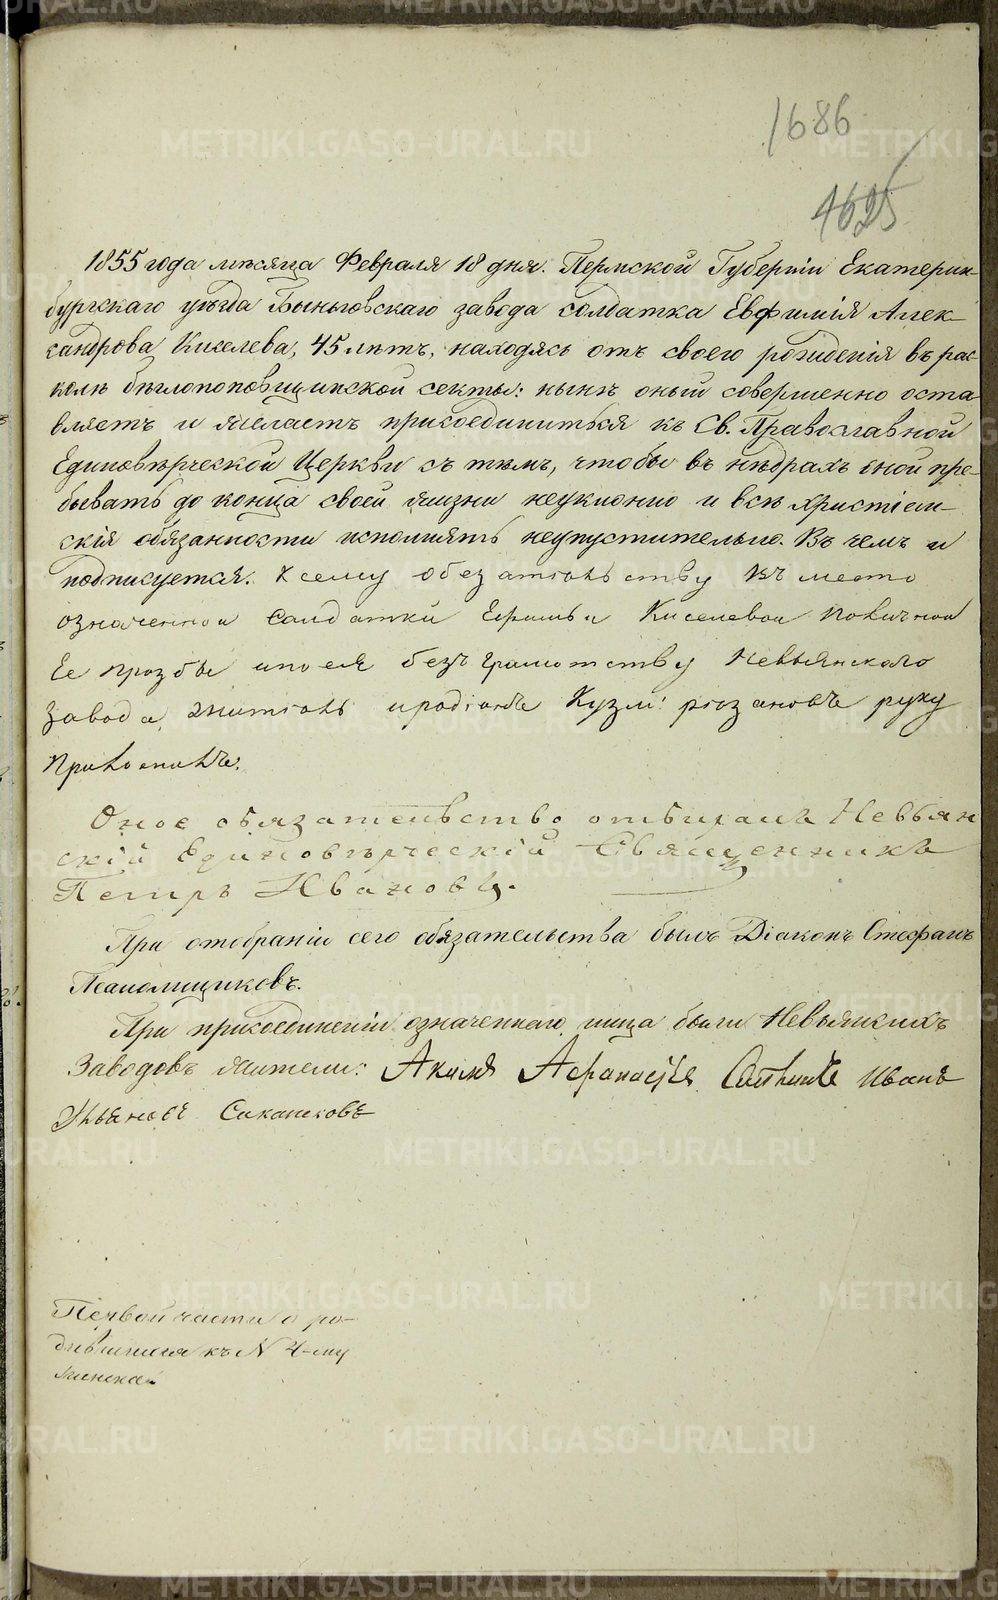 1686
4625
1855 года мѣсяца Февраля 18 дня. Пермской Губерніи Екатерин-
бургскаго уѣзда Быньговскаго завода солдатка Евфимія Алек-
сандрова Киселева, 45 лѣтъ, находясь отъ своего рожденія въ рас-
колѣ бѣглопоповщинской секты: нынѣ оный совершенно оста-
вляетъ и желаетъ присоединиться къ Св. Православной
Единовѣрческой Церкви съ тѣмъ, чтобы въ нѣдрахъ оной пре-
бывать до конца своей жизни неуклонно и всѣ Христіан-
скія обязанности исполнять неупустительно. Въ чемъ и
подписуется. К сему обезателству въ место
означенной салдатки Киселевой поличной
Ее прозбы ипо ея безъ грамотству Невьянскаго
Завода житель Кузма рука
приложилъ.
Оное обязательство отбиралъ Невьян
скій Единовѣрческій Священникъ
Петръ Ивановъ.
При отобраніи сего обязательства былъ Діаконъ Стефанъ
Псаломщиковъ.
При присоединеніи означеннаго лица были Невьянскихъ
Заводовъ жители: Акимъ Иванъ
Первой части о ро-
дившихся къ N 4-му
женской